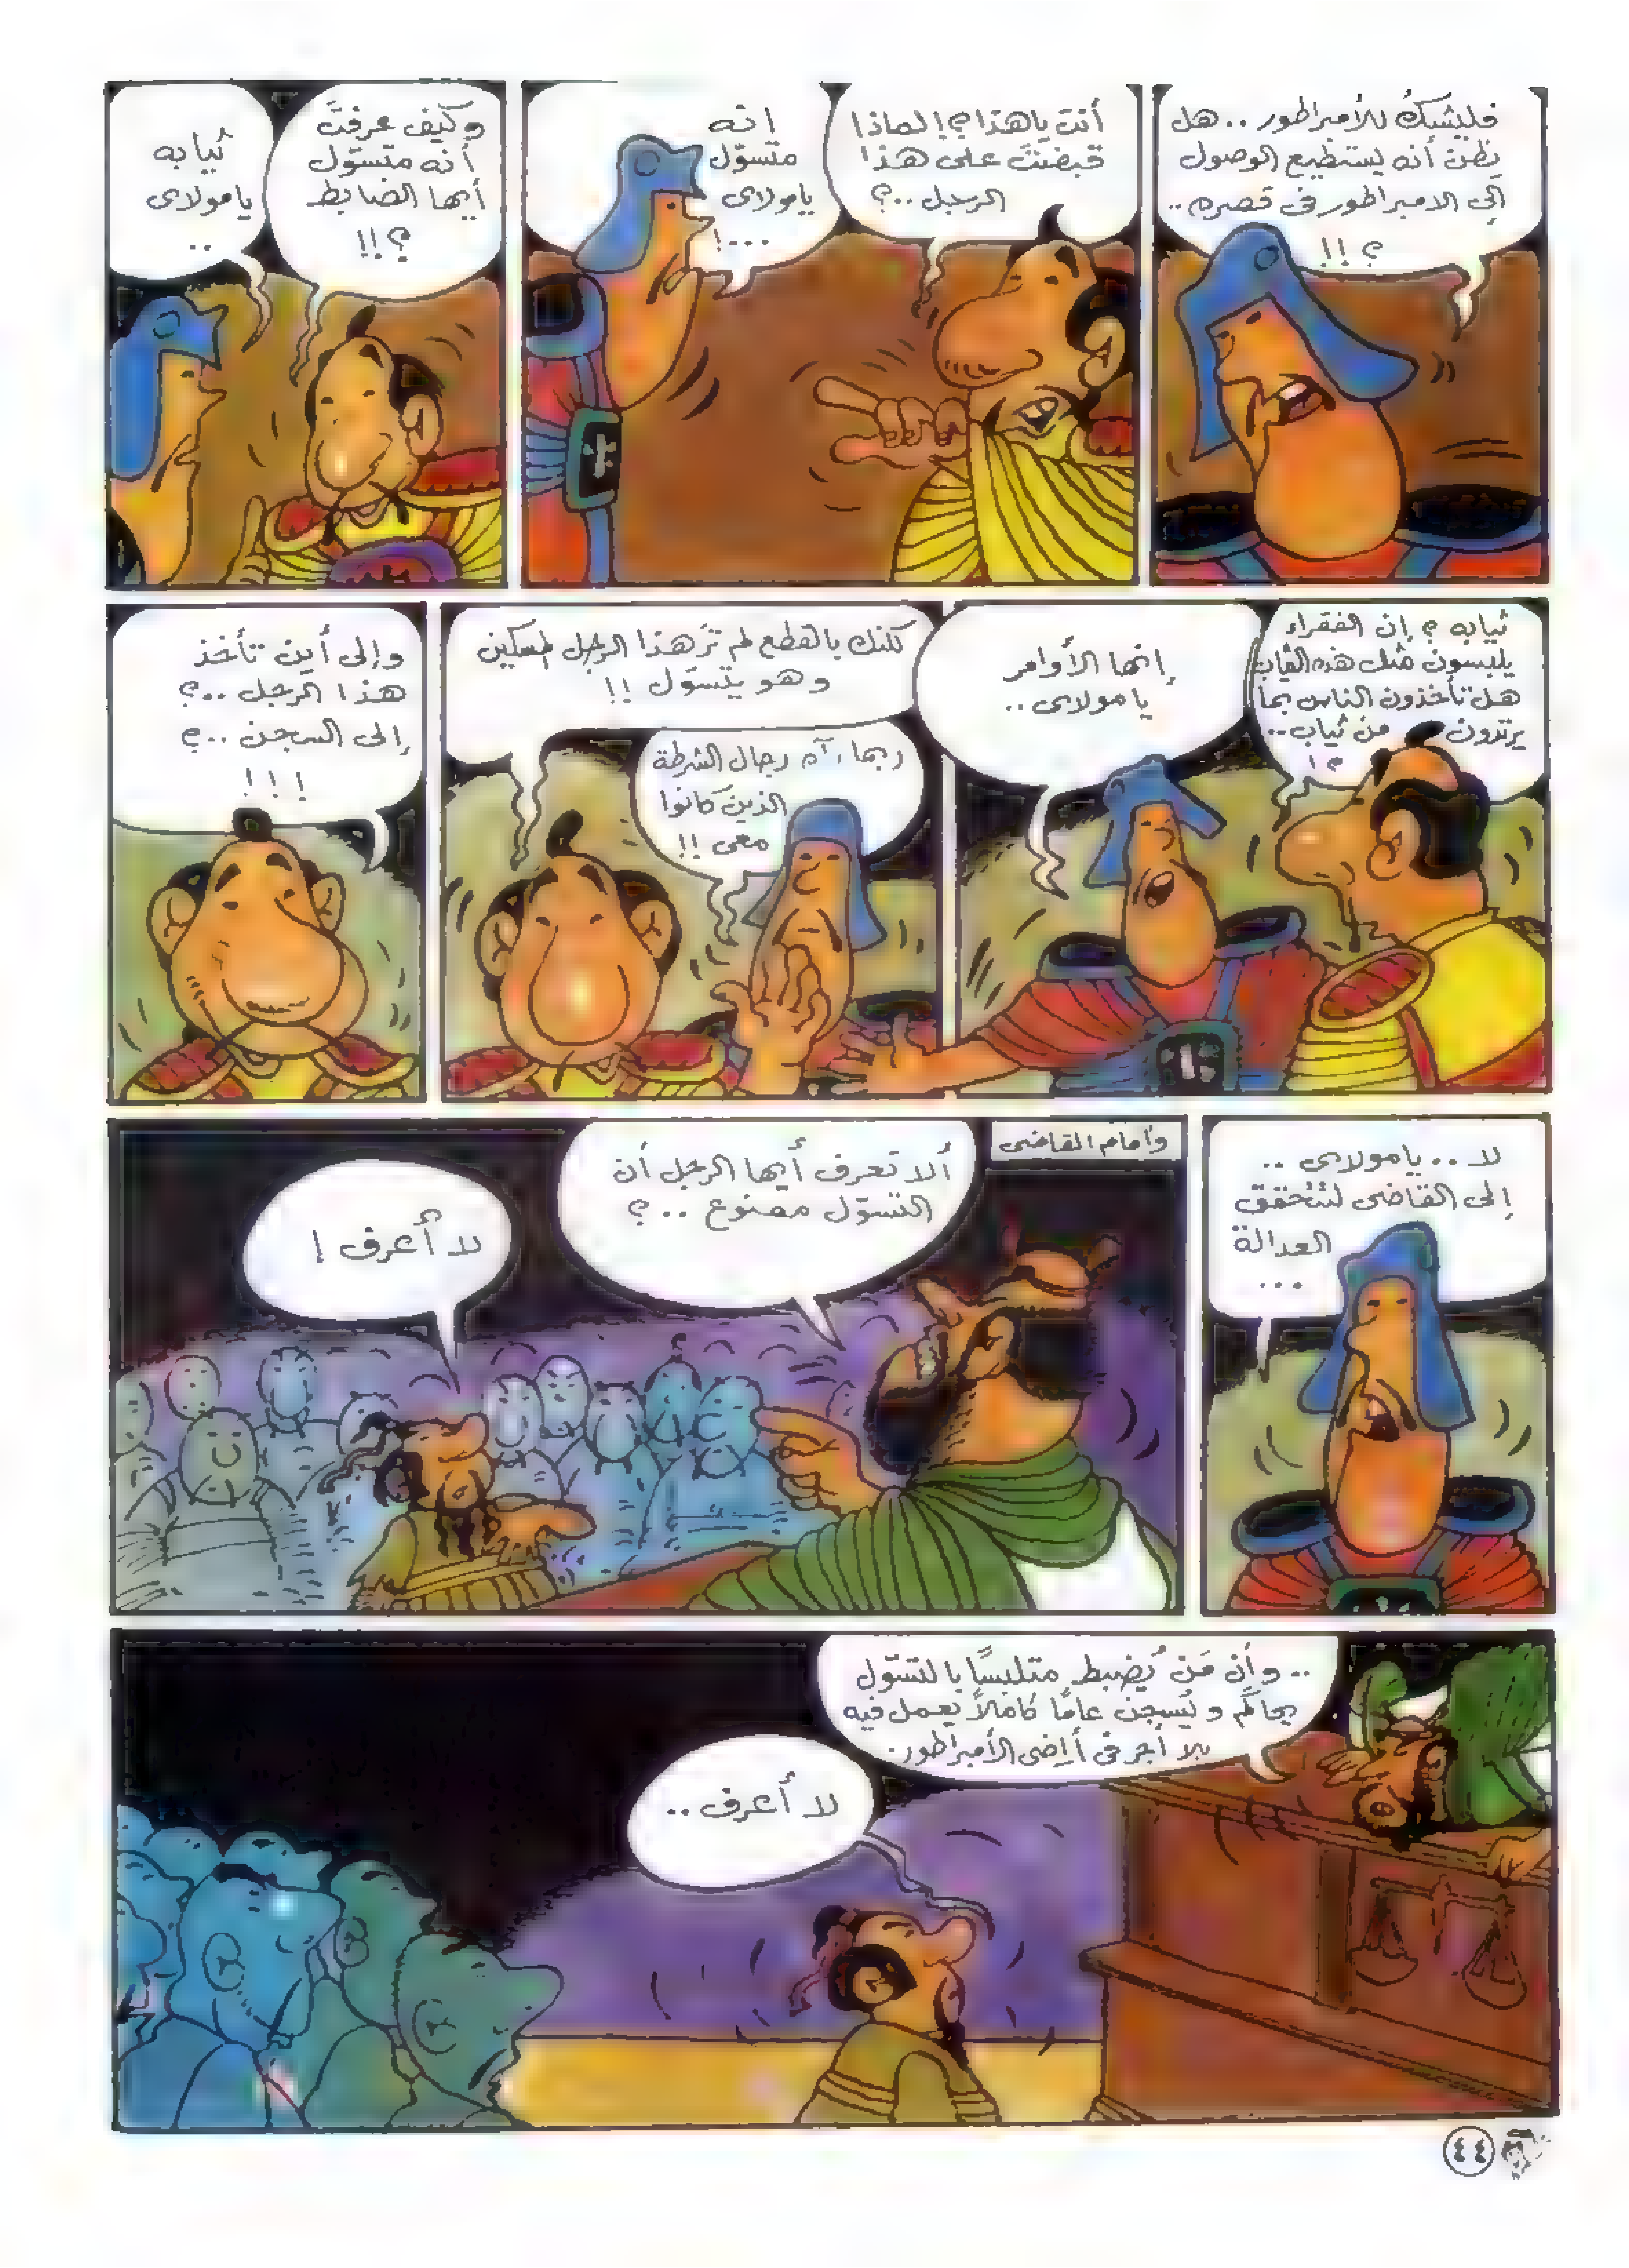 فليشبك للأمبراطور .. هل
تظن أنه يستطيع الوصول
إلى الامبراطور فى قصره ..
؟ !!
أنت ياهذا ؟! لماذا
قبضت على هذا
الرجل ..؟
انه
متسوّل
يامولاى
...!
وكيف عرفتَ
أنه متسوّل
أيها الضابط
؟ !!
ثيابه
يامولاى
..
ثيابه ؟ إن الفقراء
يلبسون مثل هذه الثياب
هل تأخذون الناس بما
يرتدون من ثياب ..
؟!
إنها الأوامر
يا مولاى ..
لكنك بالقطع لم تَرَ هذا الرجل المسكين
وهو يتسوّل !!
ربما رآه رجال الشرطة
الذين كانوا
معى !!
وإلى أين تأخذ
هذا الرجل ..؟
إلى السجن ..؟
!!!
لا .. يامولاى ..
إلى القاضى لتتحقق
العدالة
...
وأمام القاضى
ألا تعرف أيها الرجل أن
التسوّل ممنوع .. ؟
لا أعرف !
.. وأن مَنْ يُضبط متلبسًا بالتسوّل
يحاكم ويُسجن عامًا كاملاً يعمل فيه
بلا أجر فى أراضى الأمبراطور .
لا أعرف ..
٤٤